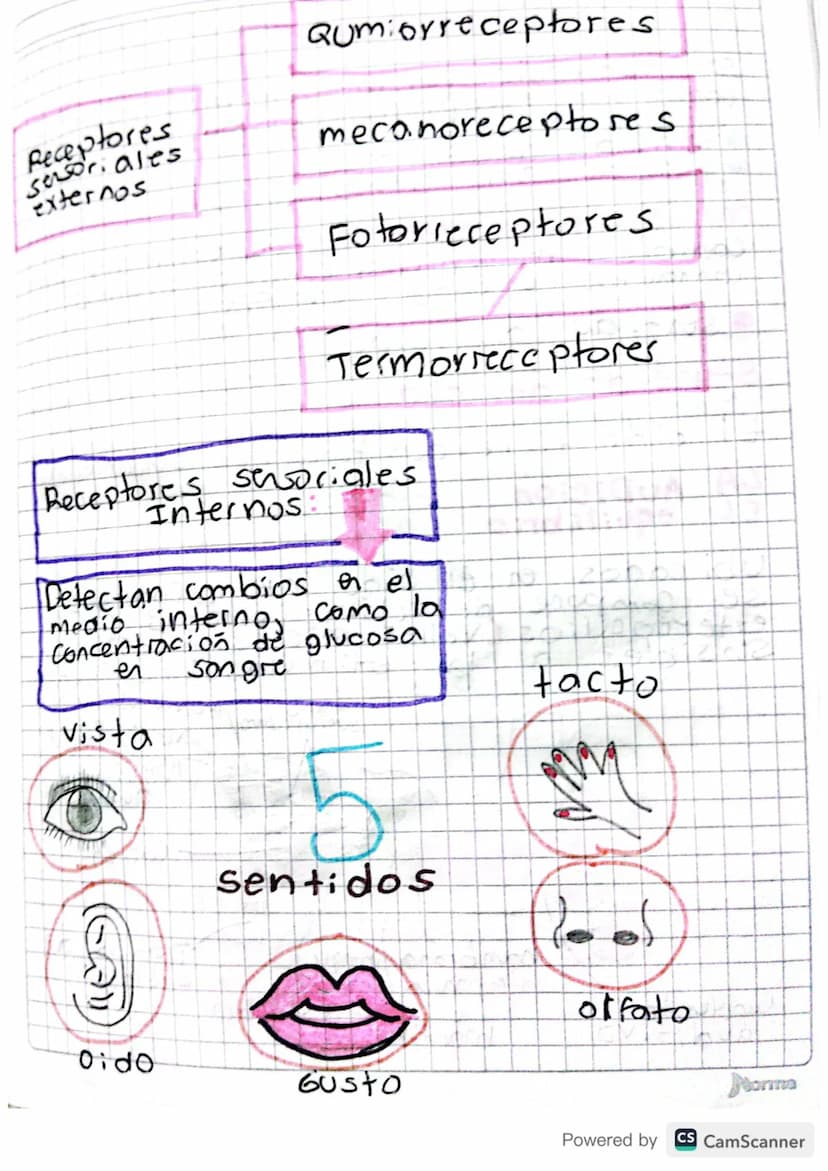 Qumiorreceptores
mecanoreceptores
Receptores
sensoriales
externos
Fotorieceptores
Termorreceptores
Receptores sensoriales
Internos:
Detectan cambios en el
medio interno, como la
concentración de glucosa
en sangre
tacto
vista
5
sentidos
olfato
oido
Gusto
Norma
Powered by CS CamScanner